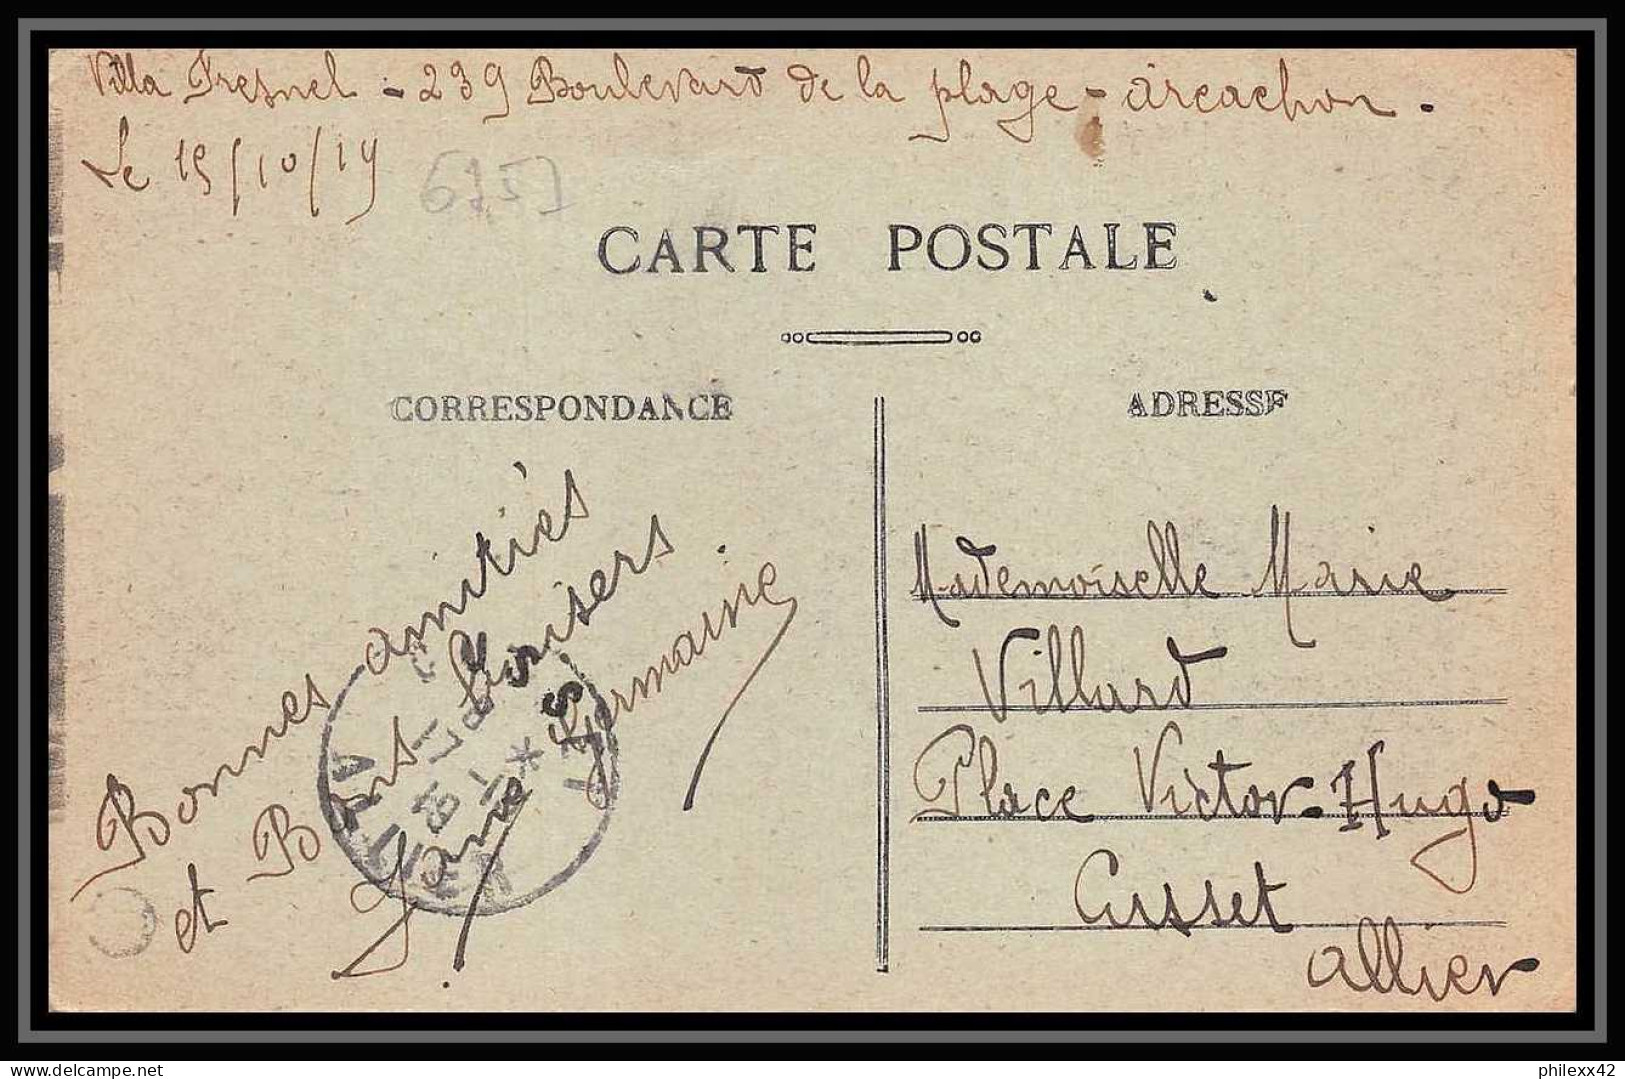 Villa Fresnel - 239 Boulevard de la plage - arcachon.
Le 15/10/19
CARTE POSTALE
CORRESPONDANCE
ADRESSE
Bonnes amitiés
et Bons Baisers
Jane Germaine
Mademoiselle Marie
Villard
Place Victor-Hugo
Cusset
allier
philexx42
delcampe.net